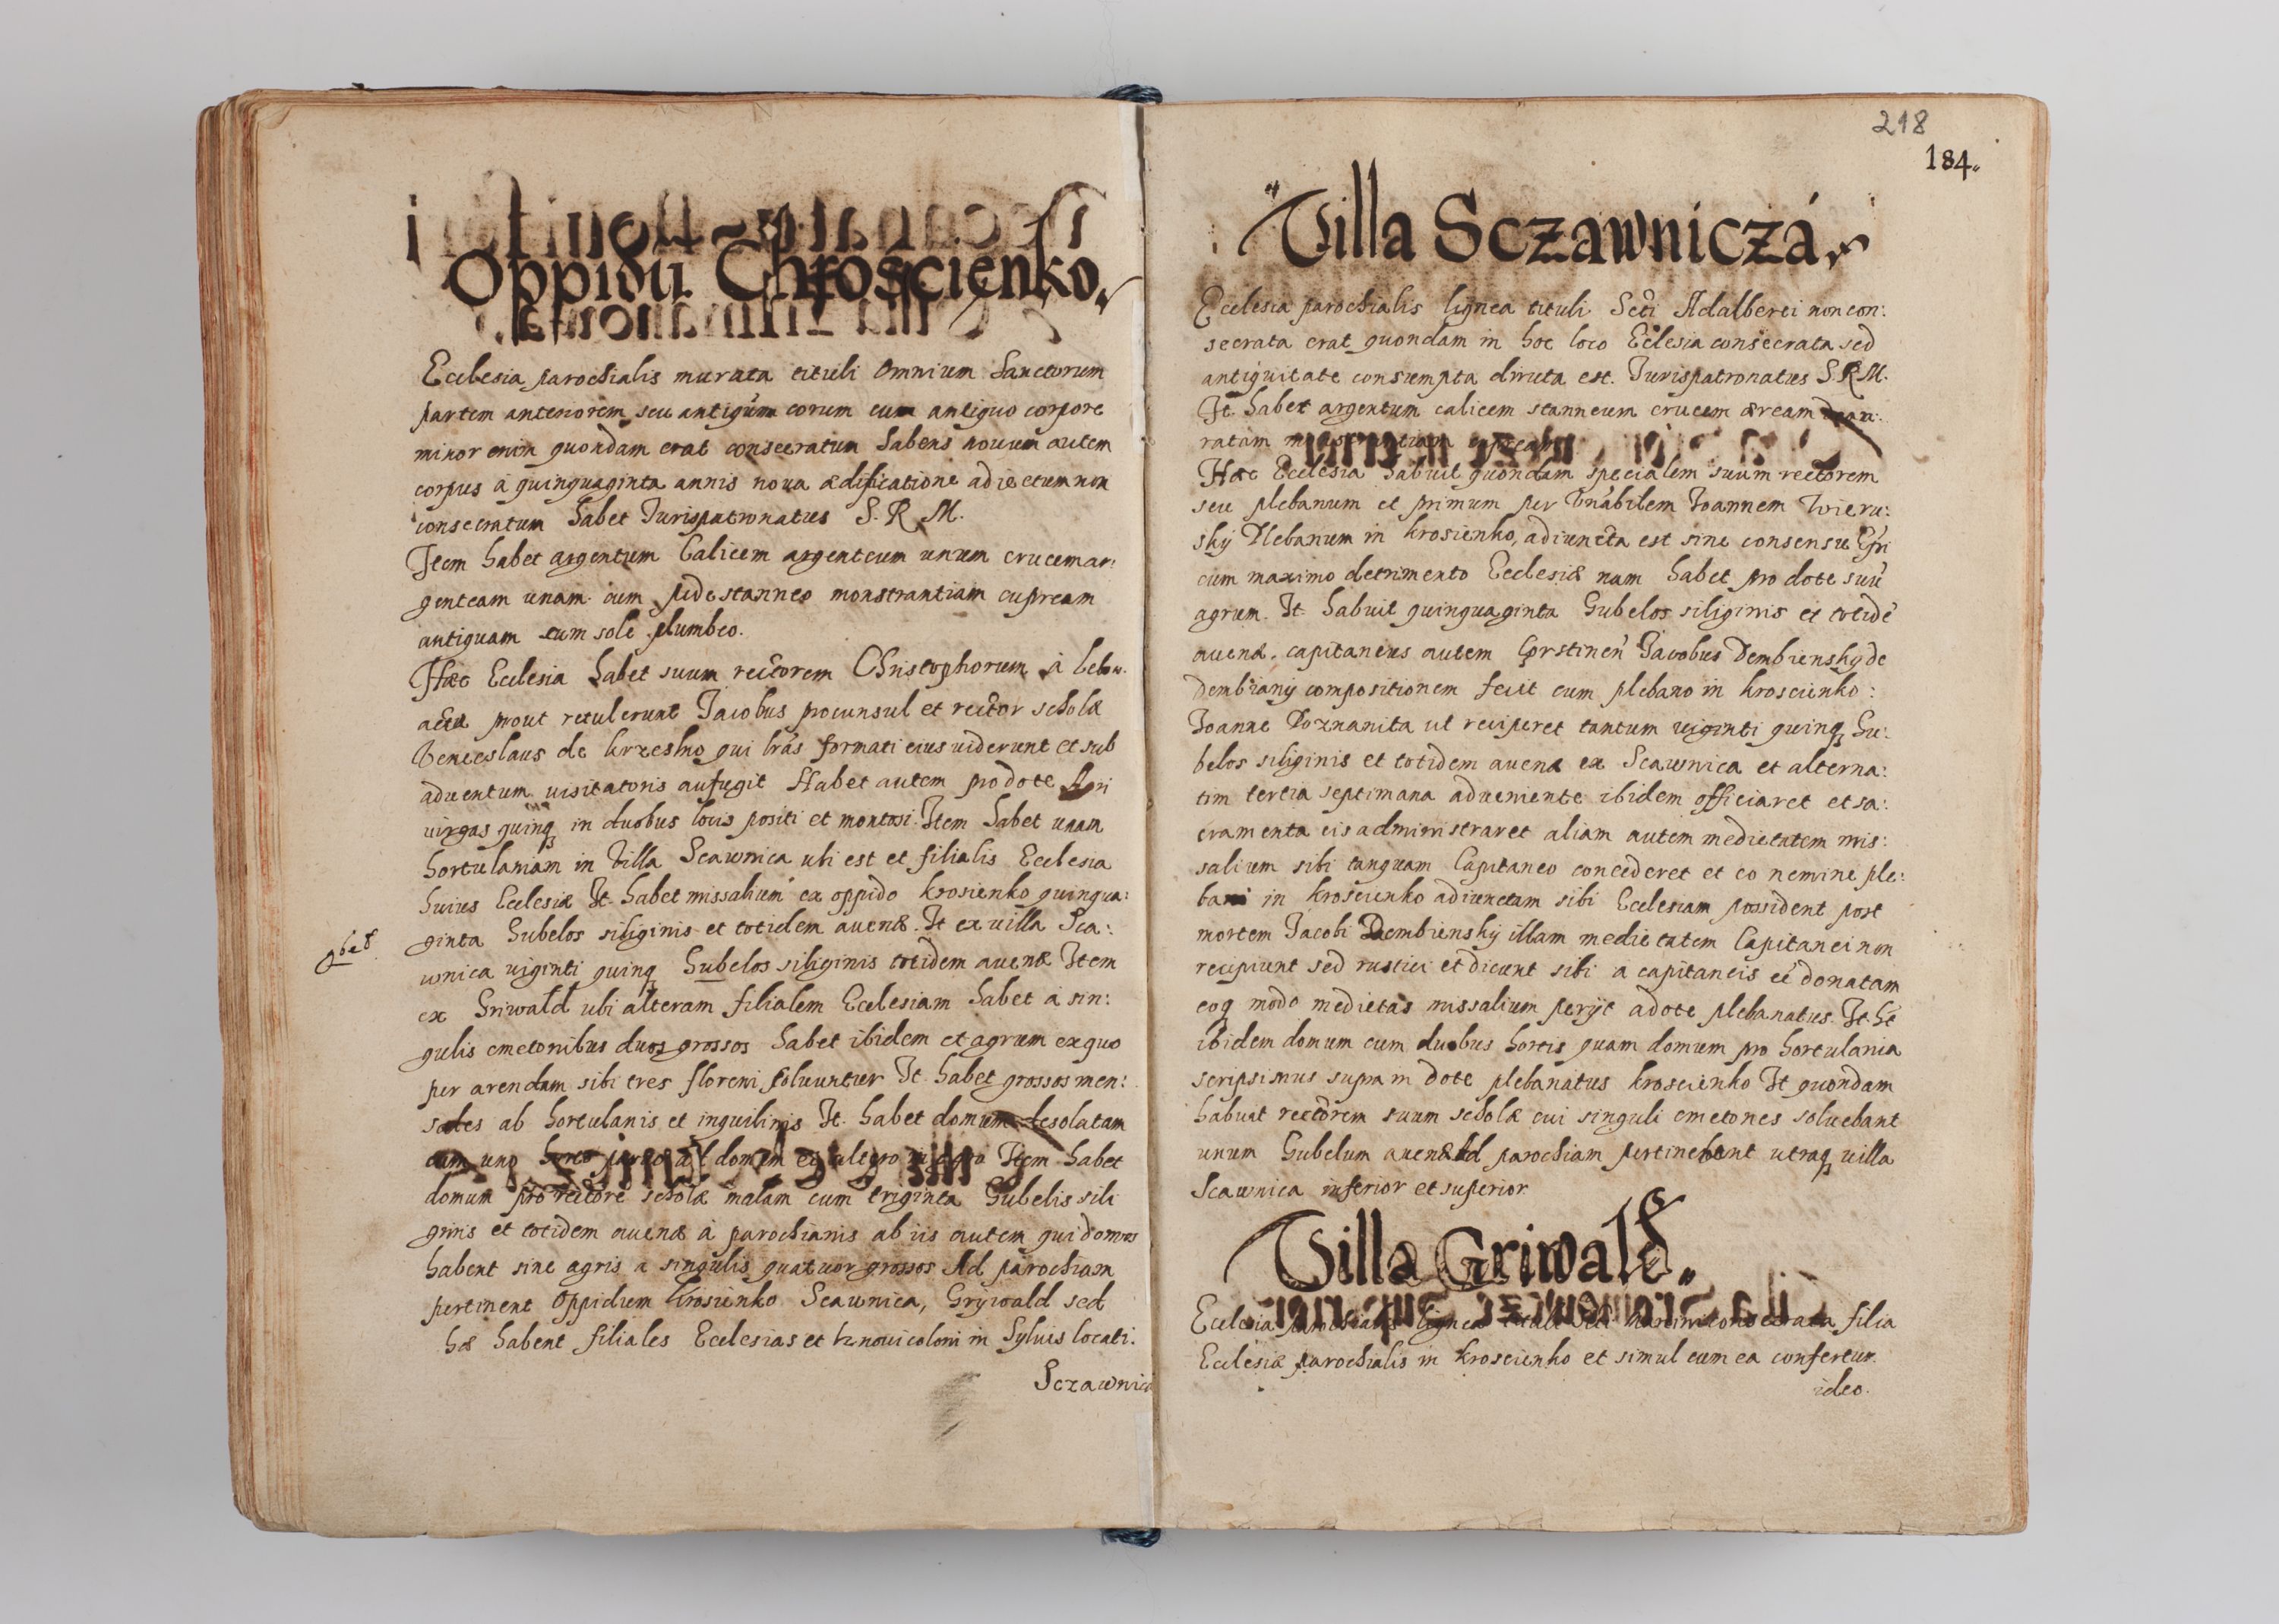 Oppidu Chrościenko.
Ecclesia parochialis murata tituli Omnium Sanctorum
partem anteriorem seu antiquum corum cum antiquo corpore
minor enim quondam erat consecratum habens nouum autem
corpus à quinquaginta annis noua ædificatione adiectum non
consecratum habet Jurispatronatus S. R. M.
Item habet argentum Calicem argenteum unum crucem ar:
genteam unam cum pede stanneo monstrantiam cupream
antiquam cum sole plumbeo.
Hæc Ecclesia habet suum rectorem Christophorum à
prout retulerunt Jacobus proconsul et rector scholæ
Venceslaus de qui lras formati eius uiderunt et sub
aduentum uisitatoris aufugit Habet autem pro dote Agri
uirgas quinq in duobus locis positi et montosi. Item habet unam
hortulaniam in Villa Scawnica ubi est et filialis Ecclesia
huius Ecclesiæ It. habet missalium ex oppido Krosienko quinqua:
ginta Gubelos siliginis et totidem auenæ. It ex uilla Sca:
wnica uiginti quinq Gubelos siliginis totidem auenæ Item
ex Griwald ubi alteram filialem Ecclesiam habet à sin:
gulis cmetonibus duos grossos habet ibidem et agrum ex quo
per arendam sibi tres floreni soluuntur It. habet grossos men:
sales ab hortulanis et inquilinis It. habet domum desolatam
cum uno horto Item habet
domum pro rectore scholæ malam cum triginta Gubelis sili
ginis et totidem auenæ à parochianis ab iis autem qui domos
habent sine agris a singulis quatuor grossos Ad parochiam
pertinent Oppidum Krosienko Scawnica, Grywald sed
hæ habent filiales Ecclesias et noui coloni in Syluis locati.
Sczawnic
218
184.
Villa Sczawniczá
Ecclesia parochialis lignea tituli Scti Adalberti non con:
secrata erat quondam in hoc loco Eclesia consecrata sed
antiquitate consumpta diruta est. Jurispatronatus S. R. M.
It. habet argentum calicem stanneum crucem æream
ratam
Hæc Ecclesia habuit quondam specialem suum rectorem
seu plebanum et primum per Vnabilem Joannem Wieru:
sky Plebanum in Krosienko, adiuncta est sine consensu Epi
cum maximo detrimento Ecclesiæ nam habet pro dote suu
agrum. It. habuit quinquaginta Gubelos siliginis et totide
auenæ. capitaneus autem Jacobus Dembiensky de
Dembiany compositionem fecit cum plebano in Kroscienko:
Joanne Poznanita ut reciperet tantum uiginti quinq Gu:
belos siliginis et totidem auenæ ex Scawnica et alterna:
tim tertia septimana adueniente ibidem officiaret et sa:
cramenta eis administraret aliam autem medietatem mis:
salium sibi tanquam Capitaneo concederet et eo nomine ple:
bani in Kroscienko adiunctam sibi Ecclesiam possident post
mortem Jacobi Dembiensky illam medietatem Capitanei non
recipiunt sed rustici et dicunt sibi a capitaneis ee donatam
eoq modo medietas missalium peryt a dote plebanatus. It. ht
ibidem domum cum duobus hortis quam domum pro hortulania
scripsimus supra in dote plebanatus Kroscienko It quondam
habuit rectorem suum scholæ cui singuli cmetones soluebant
unum Gubelum auenæ Ad parochiam pertinebant utraq uilla
Scawnica inferior et superior.
Villa Griwald.
Ecclesia parochialis lignea tituli filia
Ecclesiæ parochialis in Kroscienko et simul cum ea confertur.
ideo.